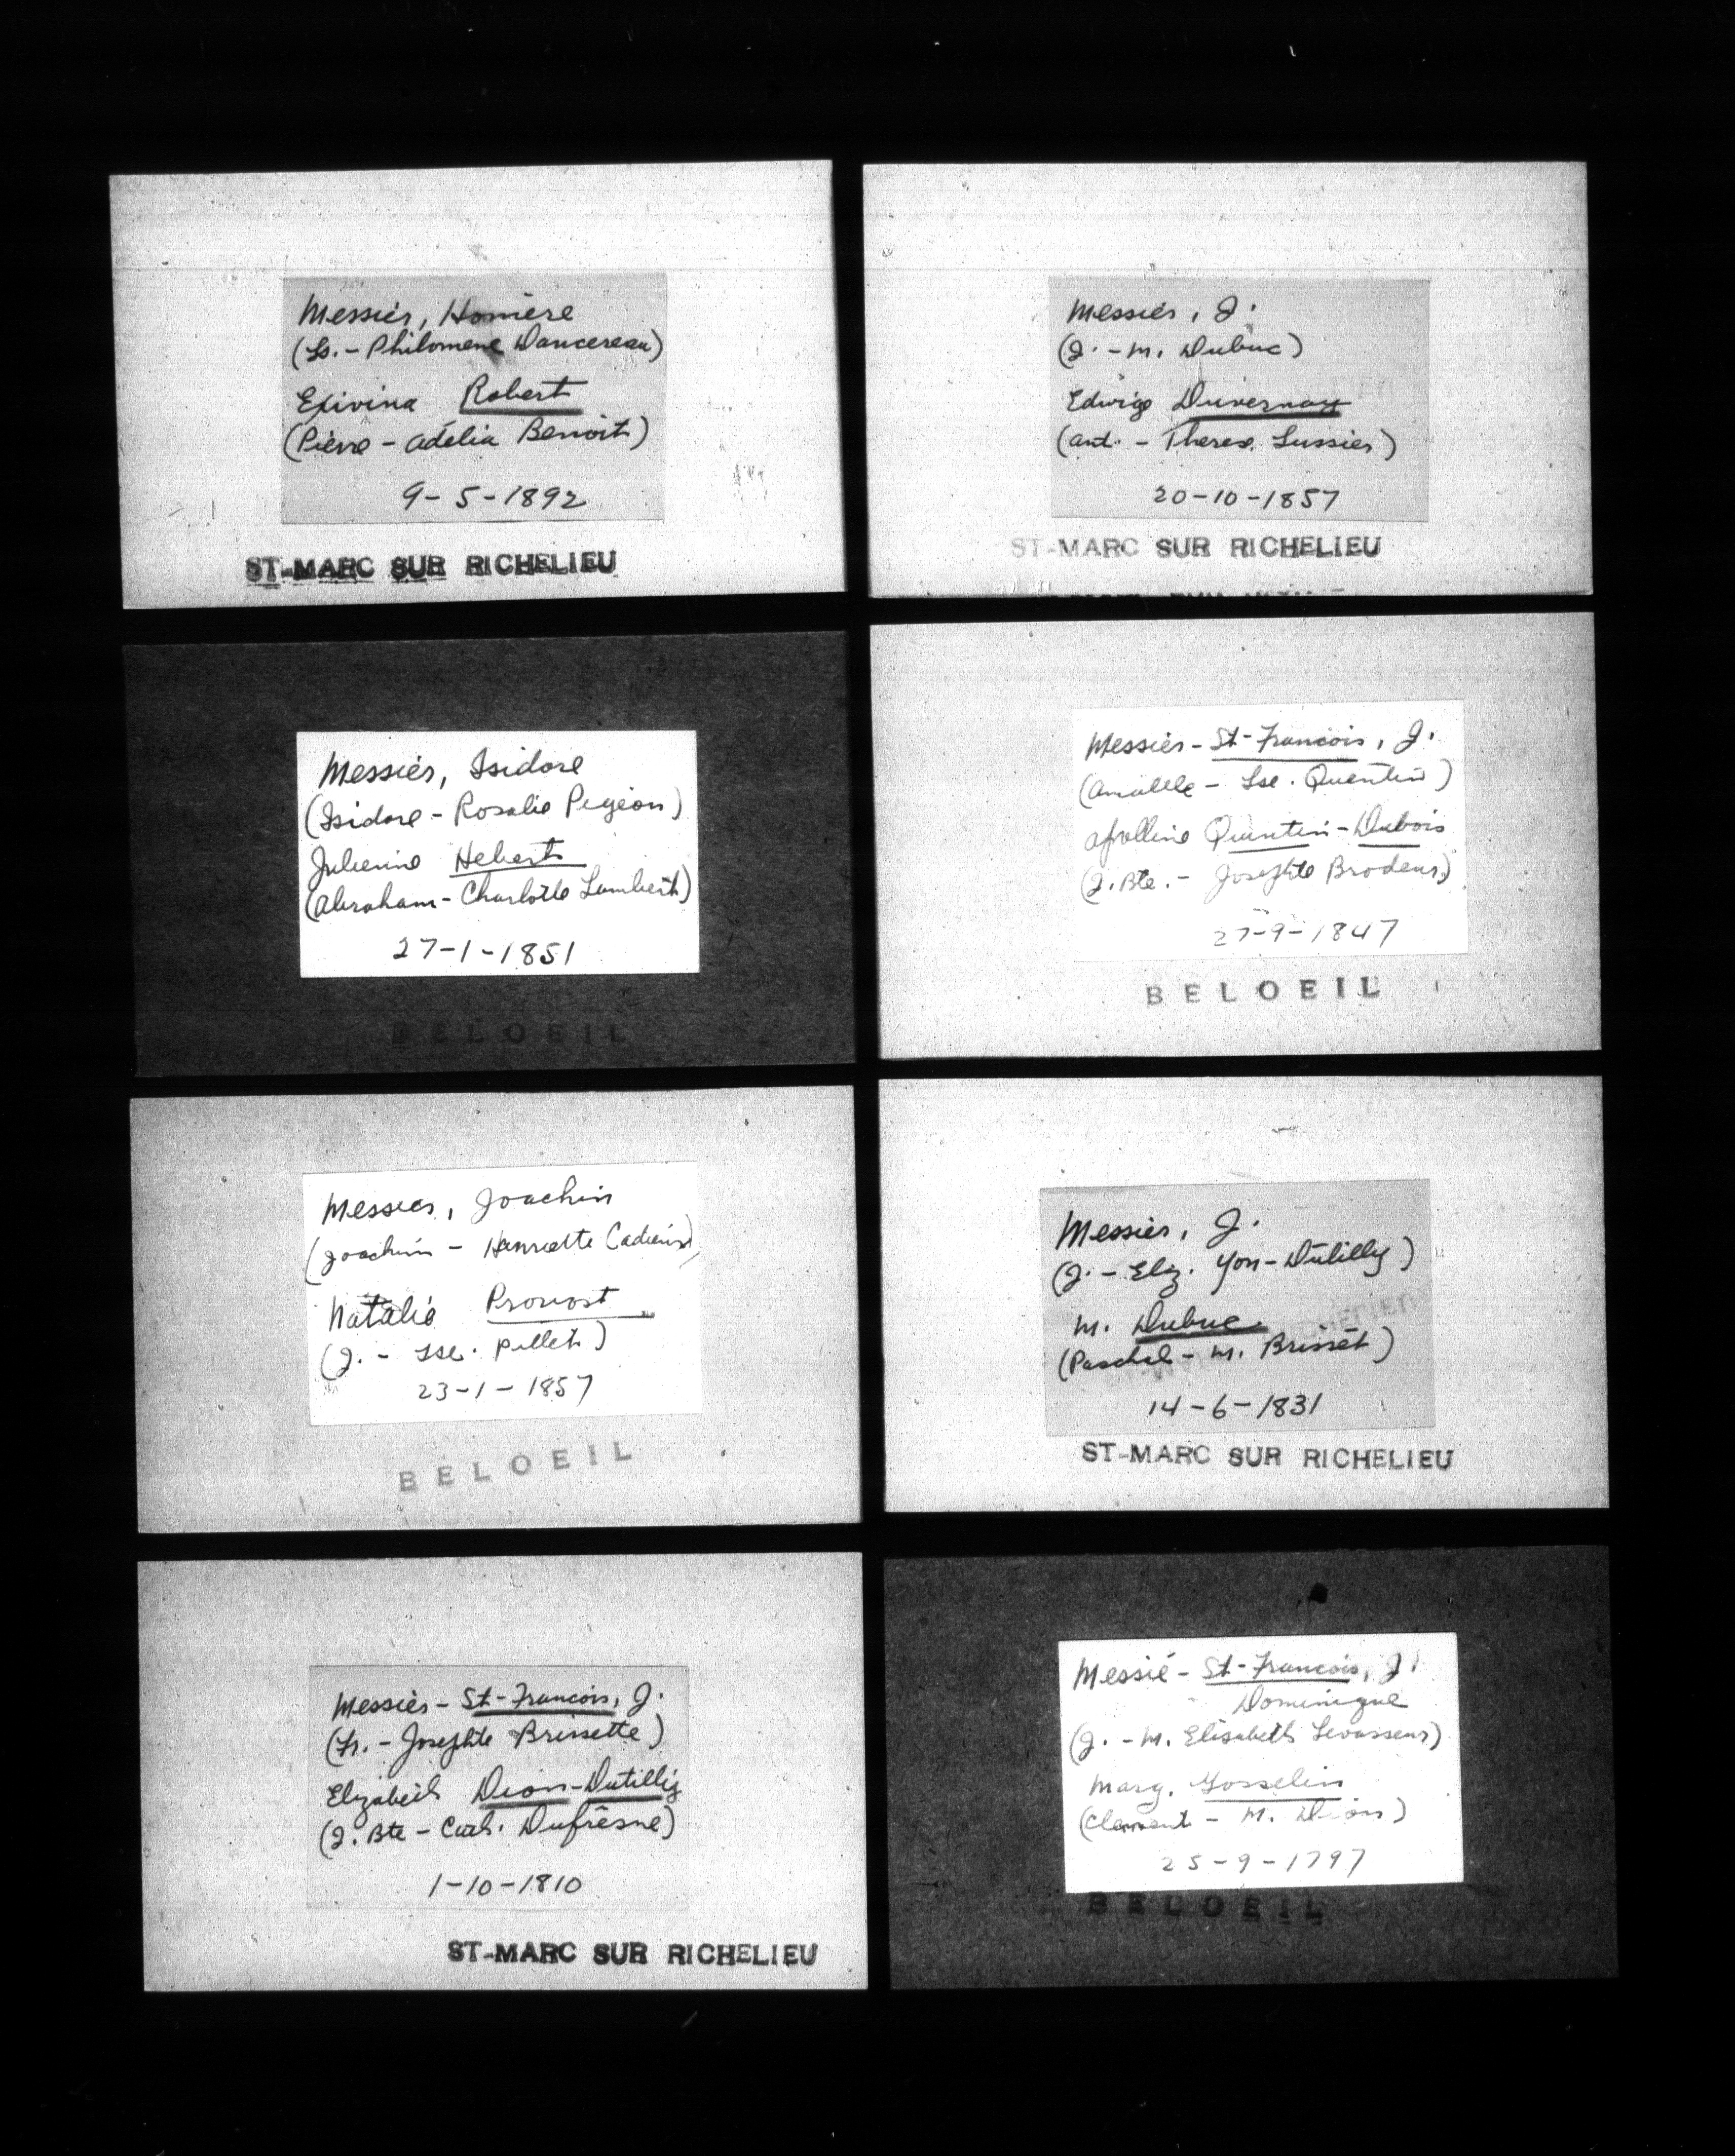 Messier, Homère
(Ls. - Philomene Dancereau)
Exivina Robert
(Pierre - Adélia Benoit)
9-5-1892
ST-MARC SUR RICHELIEU
Messier, J.
(J. - M. Dubuc)
Edwige Duvernay
(Ant. - Therese Lussier)
20-10-1857
ST-MARC SUR RICHELIEU
Messier, Isidore
(Isidore - Rosalie Pigeon)
Julienne Hebert
(Abraham - Charlotte Lambert)
27-1-1851
BELOEIL
Messier - St-Francois, J.
(Amable - Lse. Quentin)
Apolline Quintin - Dubois
(J. Bte. - Josephte Brodeur)
27-9-1847
BELOEIL
Messier, Joachin
(Joachim - Henriette Cadieux)
Natalie Provost
(J. - Lse. Pillet)
23-1-1857
BELOEIL
Messier, J.
(J. - Eliz. Yon-Dutilly)
M. Dubuc
(Paschal - M. Brisset)
14-6-1831
ST-MARC SUR RICHELIEU
Messier - St-Francois, J.
(Fr. - Josephte Brissette)
Elizabeth Dion-Dutilly
(J. Bte - Cath. Dufresne)
1-10-1810
ST-MARC SUR RICHELIEU
Messié - St-Francois, J.
Dominique
(J. - M. Elisabeth Levasseur)
Marg. Gosselin
(Clement - M. Dion)
25-9-1797
BELOEIL